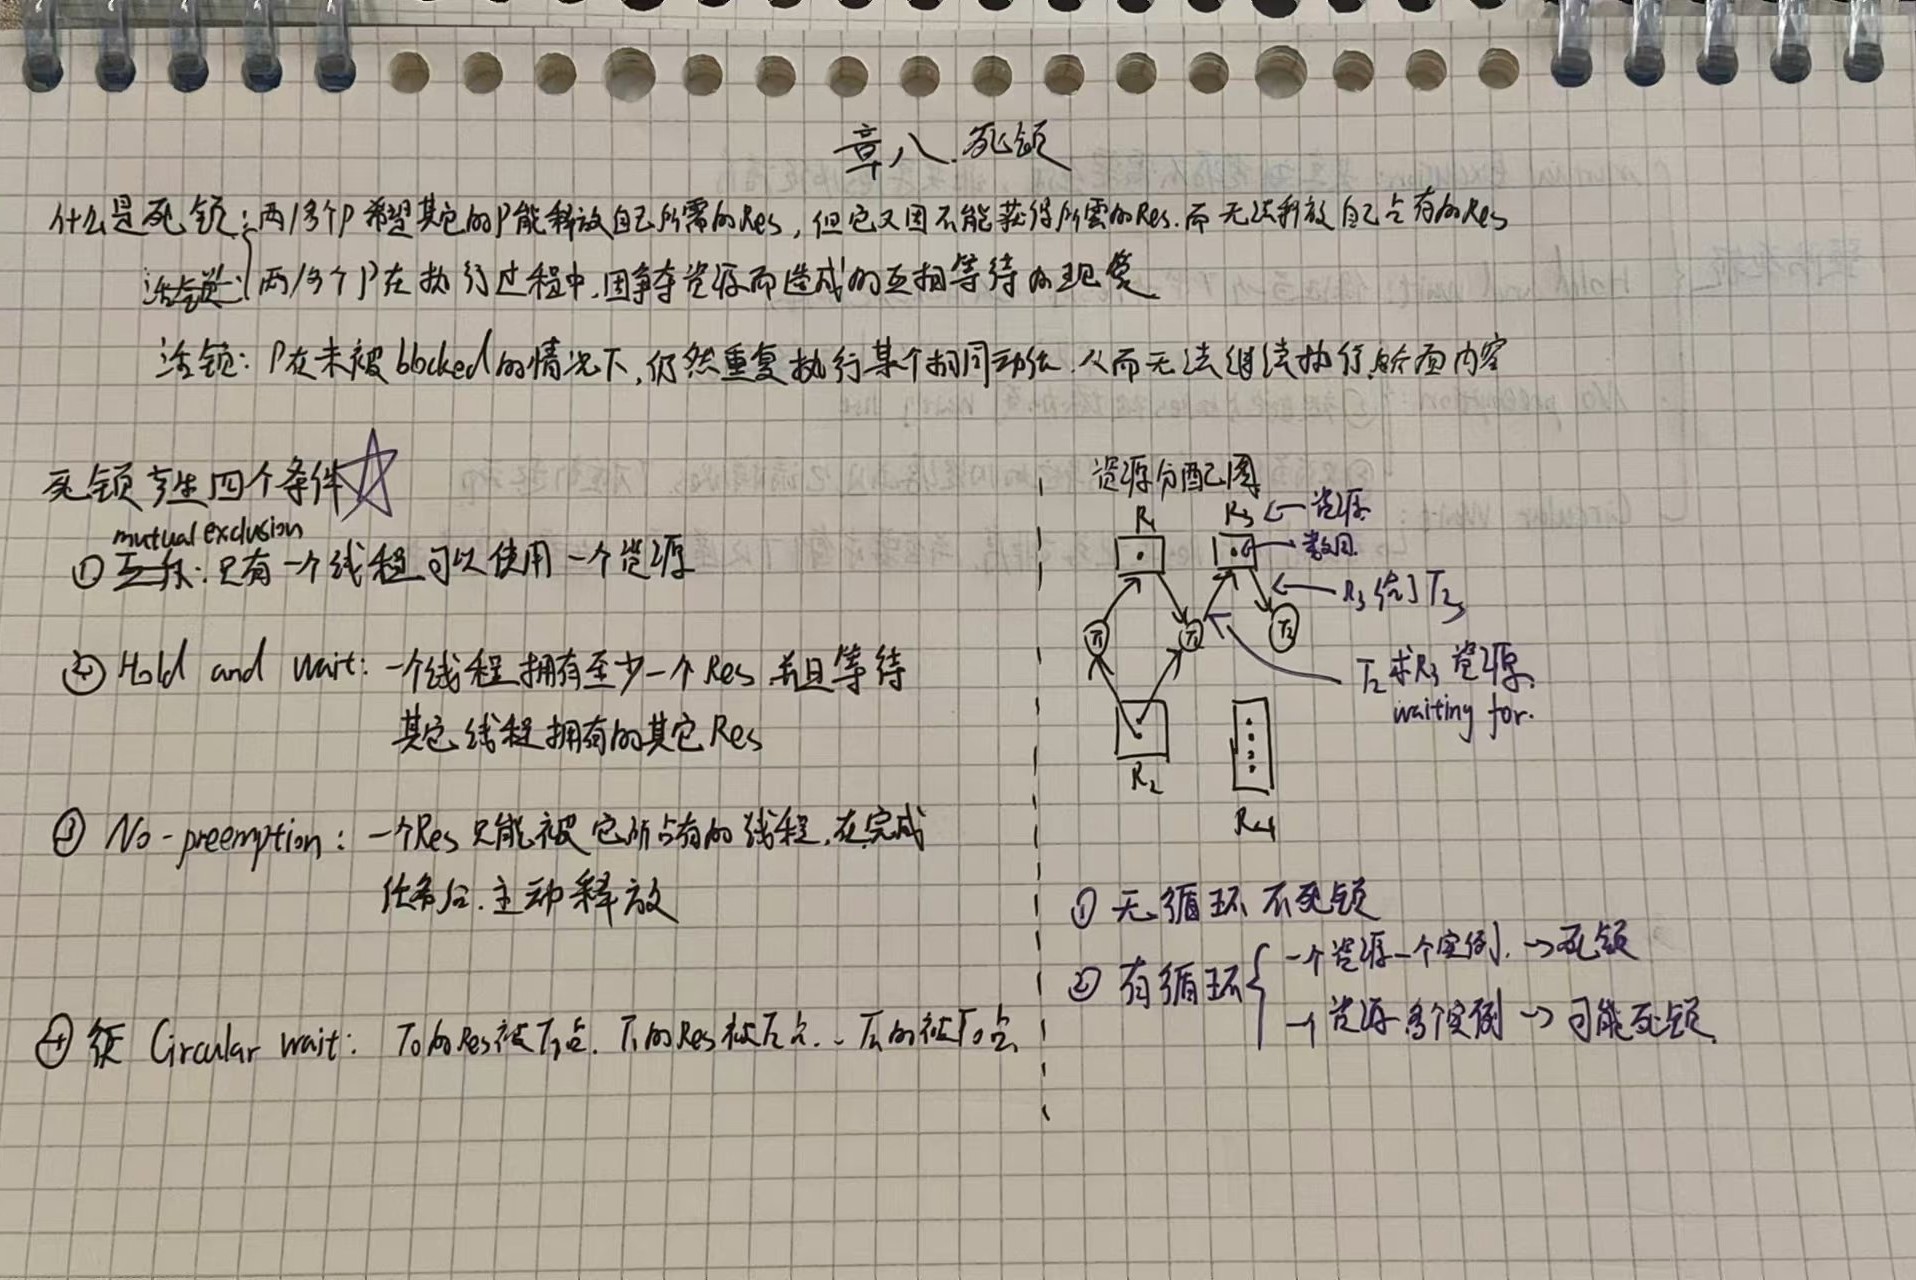 章八.死锁
什么是死锁:两/多个P希望其它的P能释放自己所需的Res,但它又因不能获得所需的Res.而无法释放自己占有的Res
两/多个P在执行过程中,因争夺资源而造成的互相等待的现象
活锁:P在未被blocked的情况下,仍然重复执行某个相同动作.从而无法继续执行后面内容
死锁产生四个条件
mutual exclusion
① 互斥:只有一个线程可以使用一个资源
② Hold and wait: 一个线程拥有至少一个Res 并且等待
其它线程拥有的其它Res
③ No-preemption: 一个Res只能被它所占有的线程,在完成
任务后.主动释放
④ Circular wait: T0的Res被T1占. T1的Res被T2占... Tn的被T0占
资源分配图
R1 R3 ← 资源
数目
R3给了T3
T1 T2 T3
T2求R3资源
waiting for.
R2
R4
① 无循环 不死锁
② 有循环
一个资源一个实例. → 死锁
一个资源多个实例 → 可能死锁